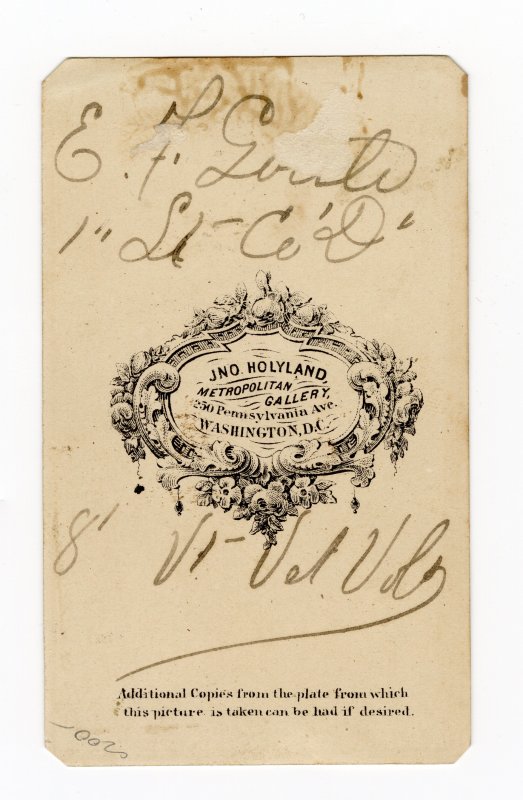 E. F. Gould
1" Lt- Co 'D'
JNO. HOLYLAND,
METROPOLITAN
GALLERY,
250 Pennsylvania Ave.
WASHINGTON, D.C.
8' Vt- Vet Vols
Additional Copies from the plate from which
this picture is taken can be had if desired.